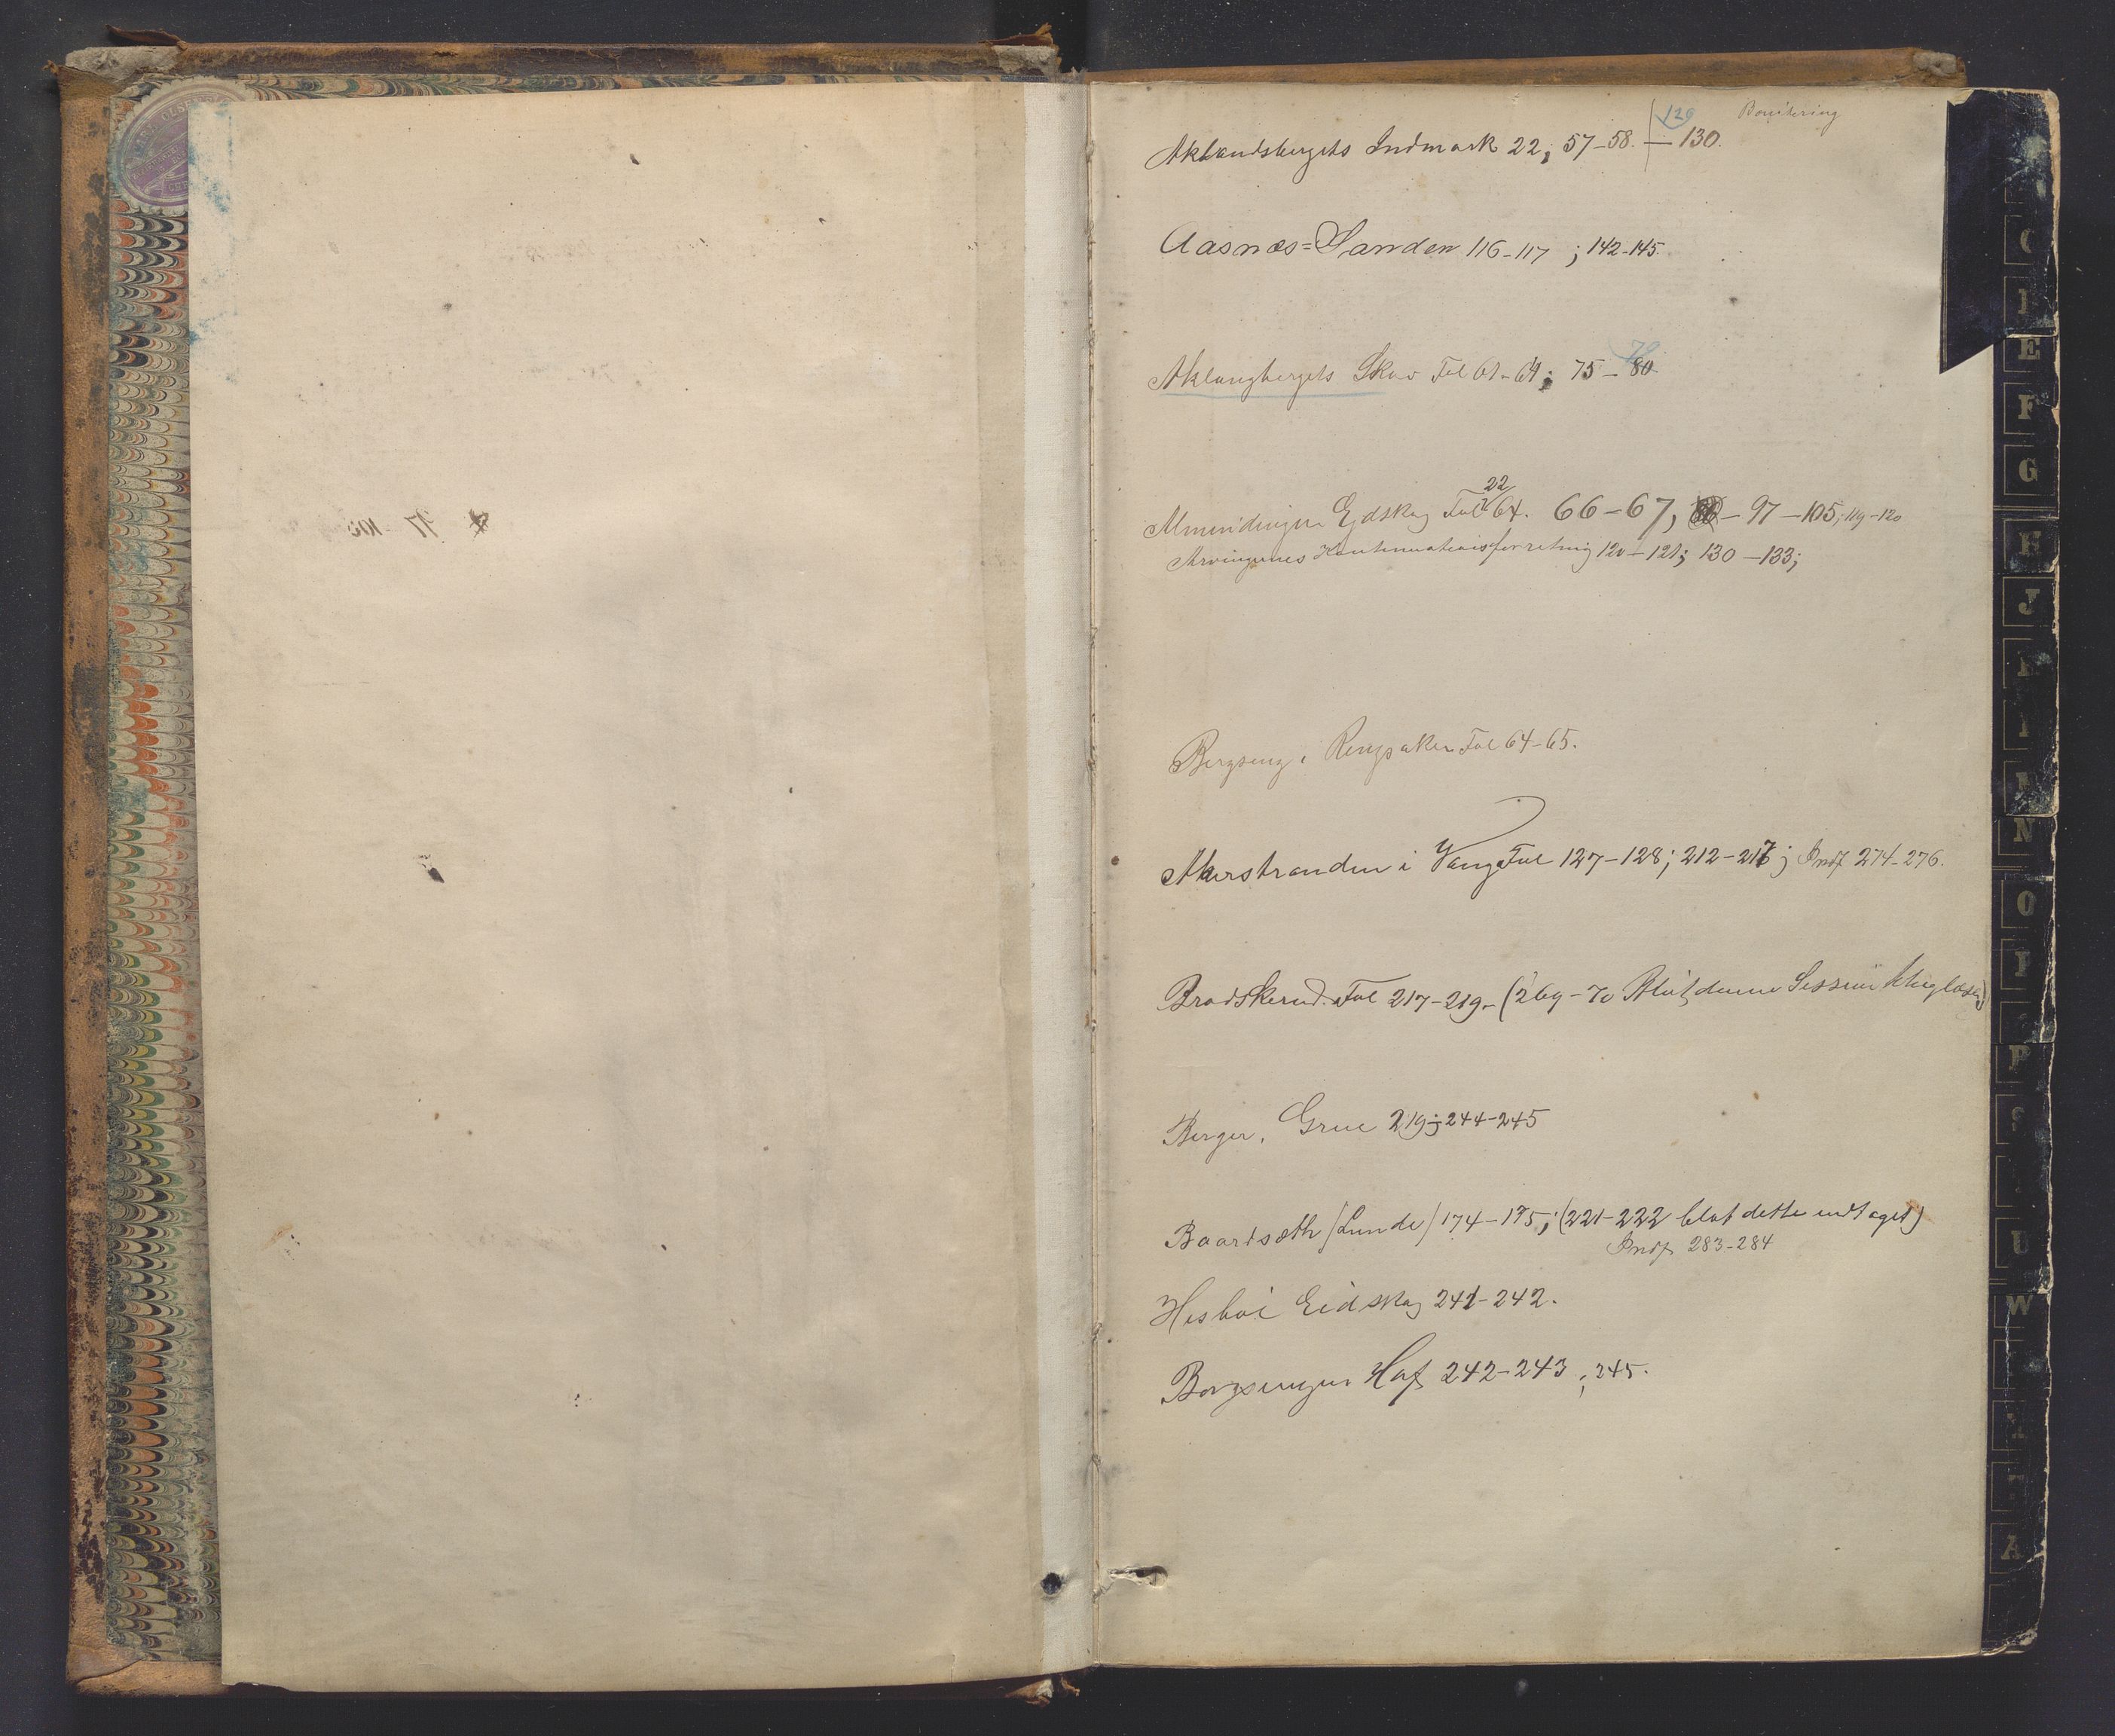 129 Bonitering
Aklandsbergets Indmark 22; 57-58. — 130.
Aasnæs=Sanden 116-117 ; 142-145.
Aklangbergets Skov Fol 61-64; 75-80
22
Almindingen Ejdskog Fol 64. 66-67, - 97-105; 119-120
Arvingernes Kontinuationsforretning 120-121; 130-133;
Bergseng i Ringsaker Fol 64-65.
Akerstranden i Vang Fol 127-128; 212-217; Indf 274-276.
Brodskerud Fol 217-219- (269-70 Blot denne Session
Berger, Grue 219; 244-245
Baardsæth /Lunde/ 174-175; (221-222 blot dette udtaget)
Indf 283-284
Eidskog 241-242.
Hof 242-243 ; 245.
97-105
E
F
G
H
J
N
O
P
R
S
U
W
A